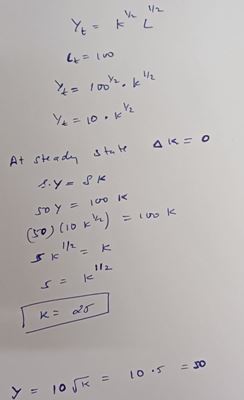 Yₜ = K^1/2 L^1/2
Lₜ = 100
Yₜ = 100^1/2 · K^1/2
Yₜ = 10 · K^1/2
At steady state ΔK = 0
s.Y = SK
50Y = 100 K
(50) (10 K^1/2) = 100 K
5 K^1/2 = K
5 = K^1/2
K = 25
Y = 10 √K = 10 · 5 = 50